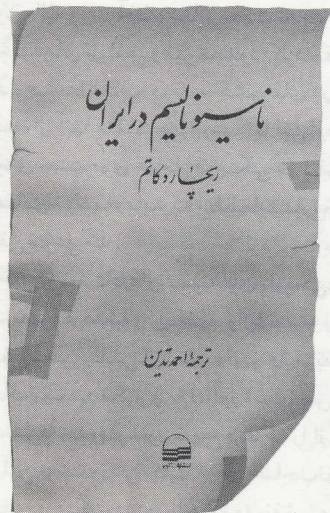 ناسیونالیسم در ایران
ریچارد کاتم
ترجمهٔ احمد تدین